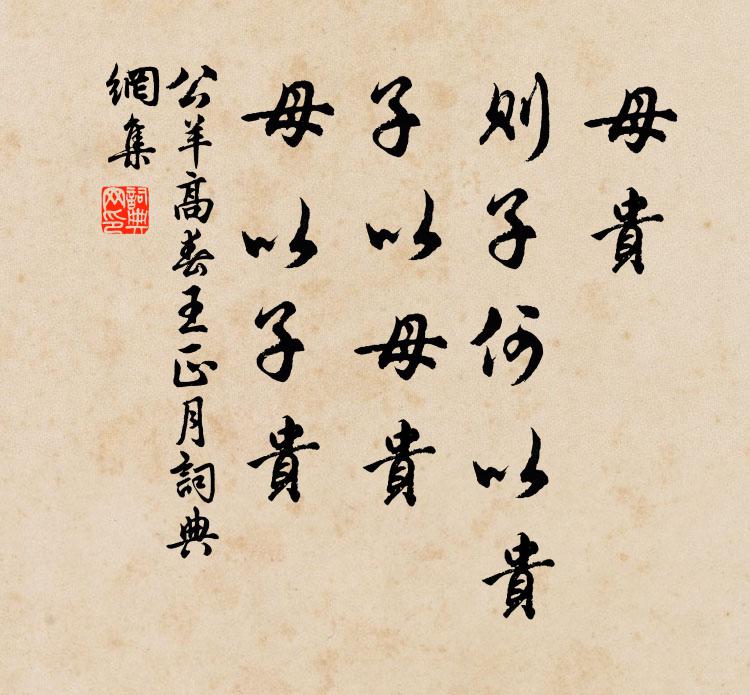 母貴
則子何以貴
子以母貴
母以子貴
公羊高春王正月詞典
網集
詞典
网印